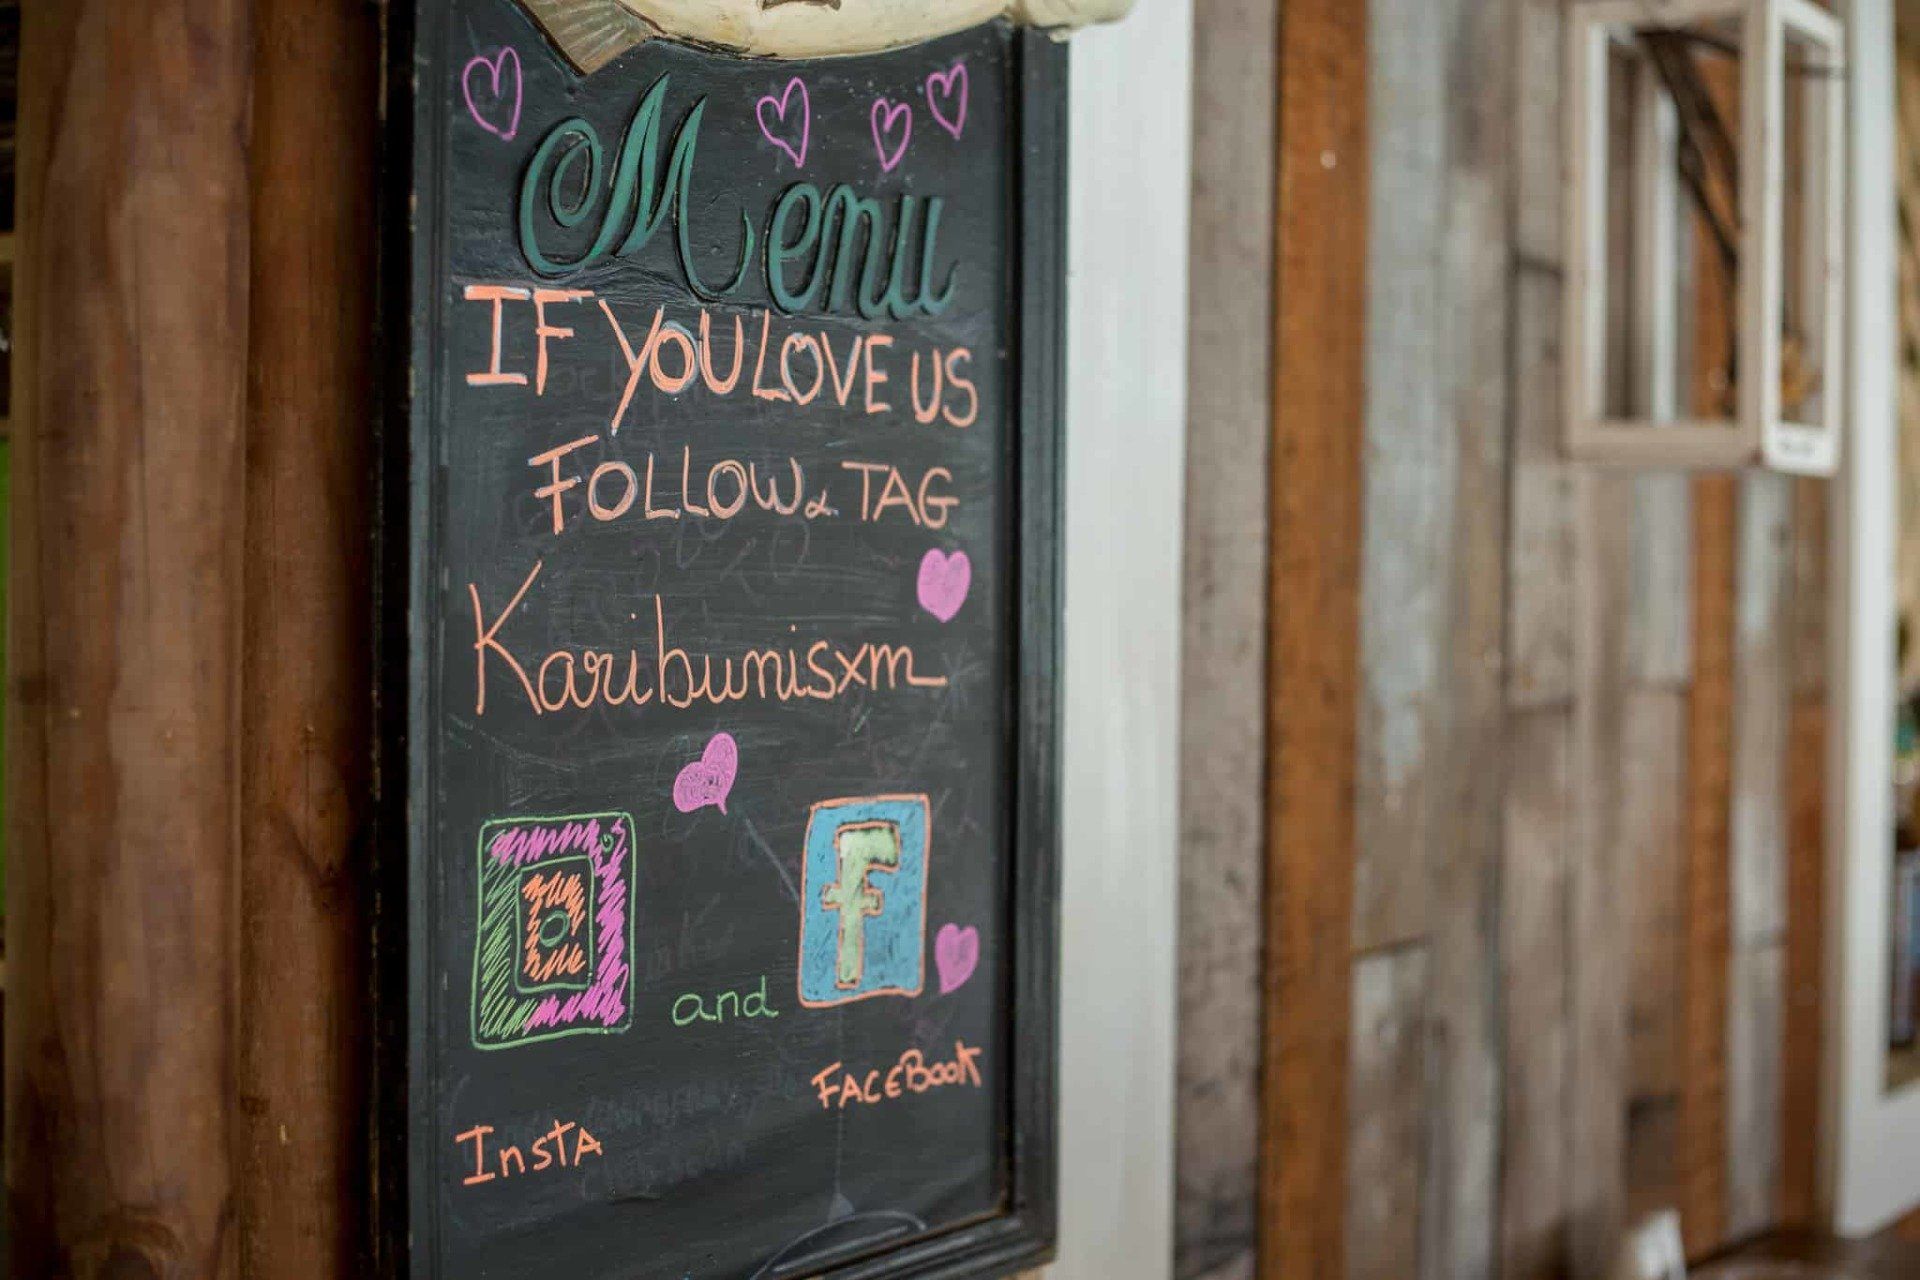 Menu
IF YOU LOVE US
FOLLOW & TAG
Karibunisxm
f
and
FACEBOOK
INSTA